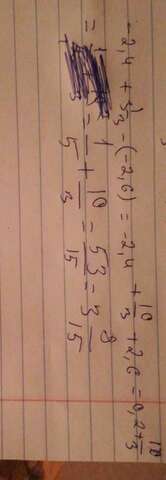 -2,4 + 3 1/3 - (-2,6) = -2,4 + 10/3 + 2,6 = 0,2 + 10/3
= 1/5 + 10/3 = 53/15 = 3 8/15